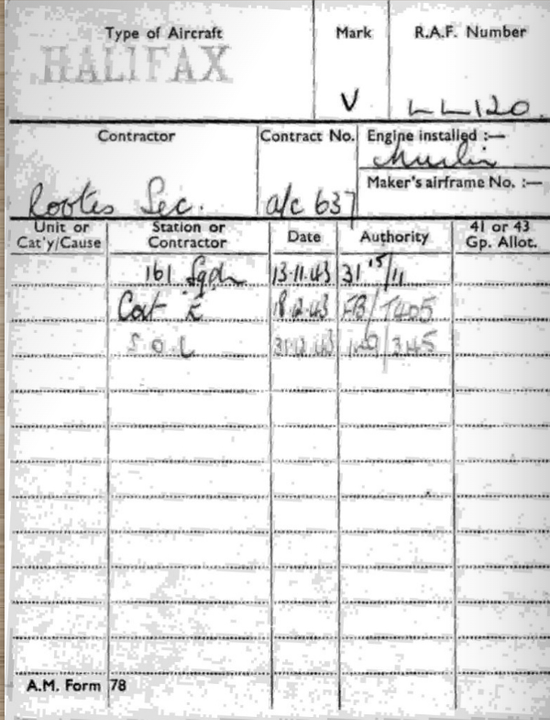 Type of Aircraft Mark R.A.F. Number
HALIFAX V LL120.
Contractor Contract No. Engine installed :—
Merlin
Maker's airframe No. :—
Rootes Sec. a/c 637
Unit or Cat'y/Cause Station or Contractor Date Authority 41 or 43 Gp. Allot.
161 Sqdn 13.11.43 31 15/11
Cat E 18.12.43 FB/T405
S.O.C 31.12.43 /345
A.M. Form 78